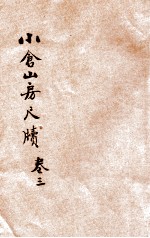 小倉山房尺牘 卷三